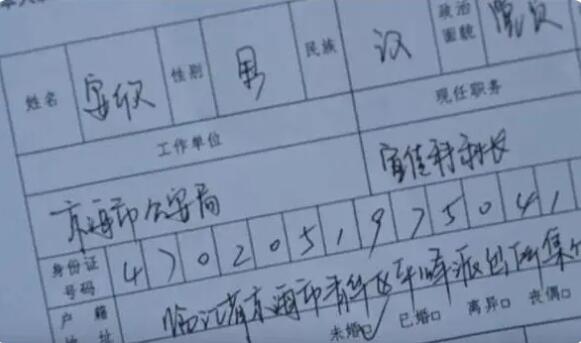 姓名 安欣 性别 男 民族 汉 政治面貌 党员
工作单位 现任职务
京海市公安局 宣传科科长
身份证号码 4 7 0 2 0 5 1 9 7 5 0 4 1
户籍 临江省京海市青华区 派出所集
未婚☑ 已婚□ 离异□ 丧偶□